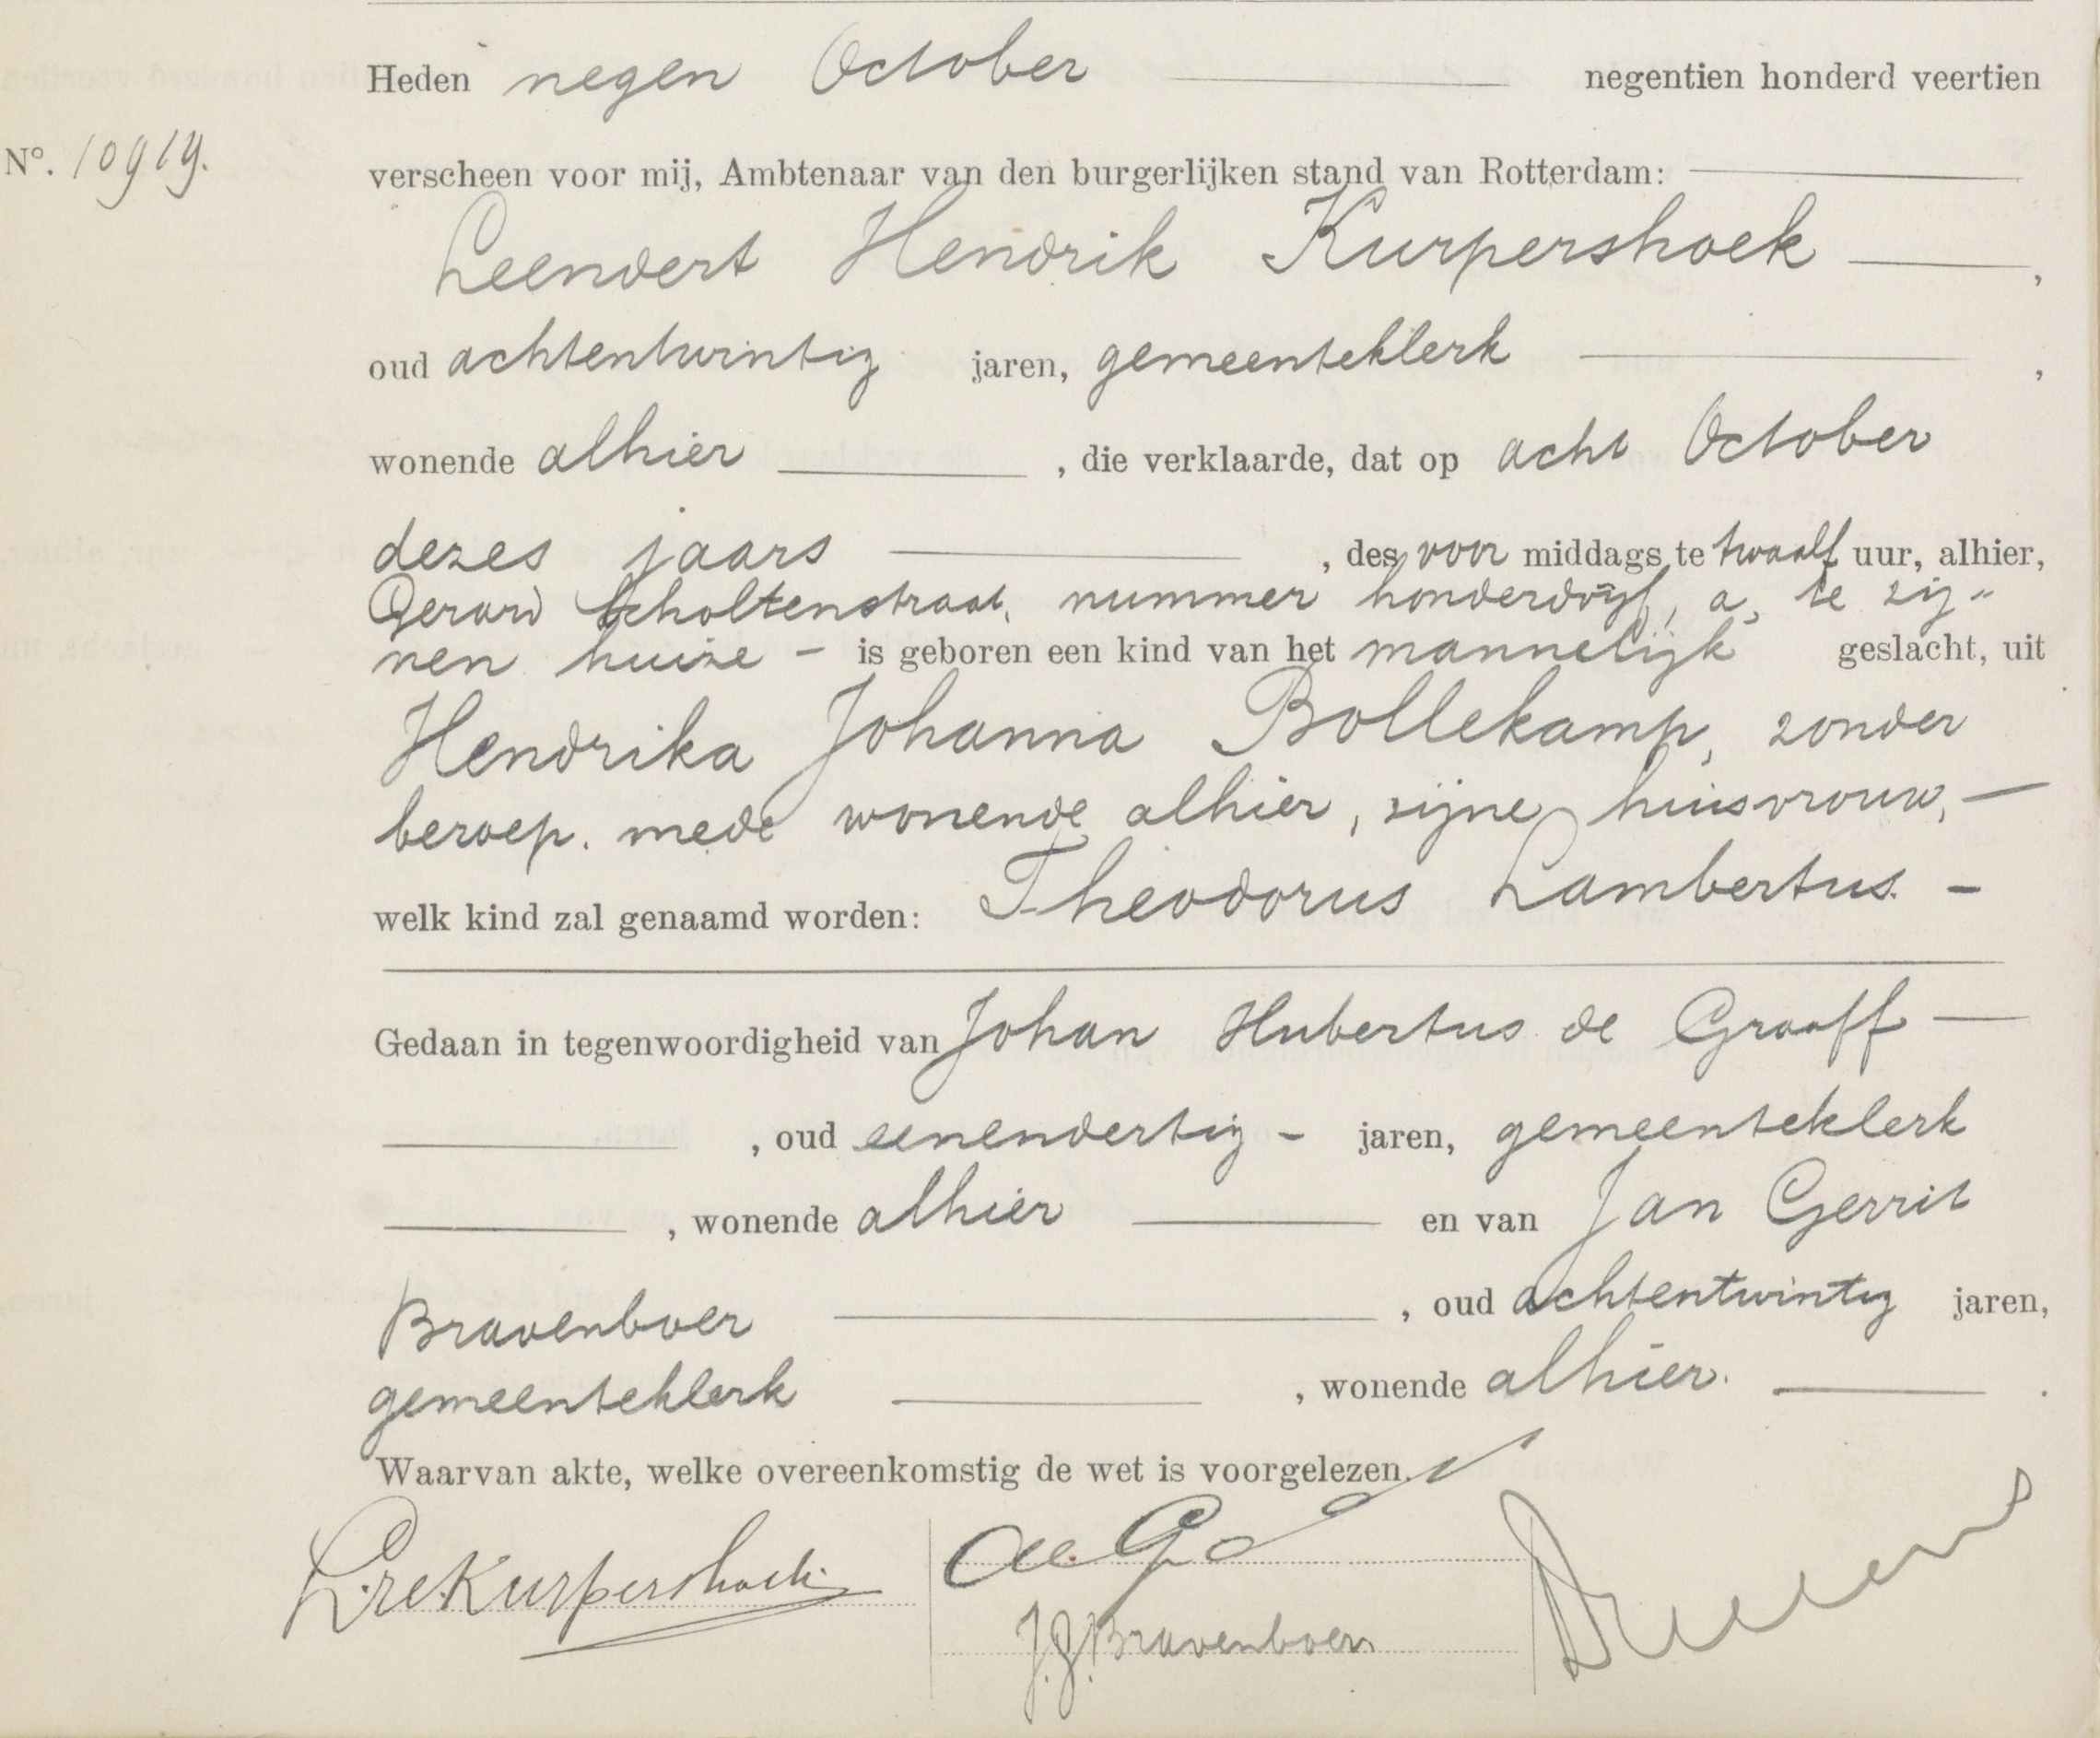 Heden negen October negentien honderd veertien
N°. 10919.
verscheen voor mij, Ambtenaar van den burgerlijken stand van Rotterdam:
Leendert Hendrik Kurpershoek ,
oud achtentwintig jaren, gemeenteklerk ,
wonende alhier , die verklaarde, dat op acht October
dezes jaars , des voor middags te twaalf uur, alhier,
Gerard Scholtenstraat, nummer honderdvijf, a, te zij-
nen huize - is geboren een kind van het mannelijk geslacht, uit
Hendrika Johanna Bollekamp, zonder
beroep. mede wonende alhier, zijne huisvrouw, —
welk kind zal genaamd worden: Theodorus Lambertus. -
Gedaan in tegenwoordigheid van Johan Hubertus de Graaff —
, oud eenendertig - jaren, gemeenteklerk
, wonende alhier en van Jan Gerrit
Bravenboer , oud achtentwintig jaren,
gemeenteklerk , wonende alhier. .
Waarvan akte, welke overeenkomstig de wet is voorgelezen.
Kurpershoek
de G
J.G. Bravenboer